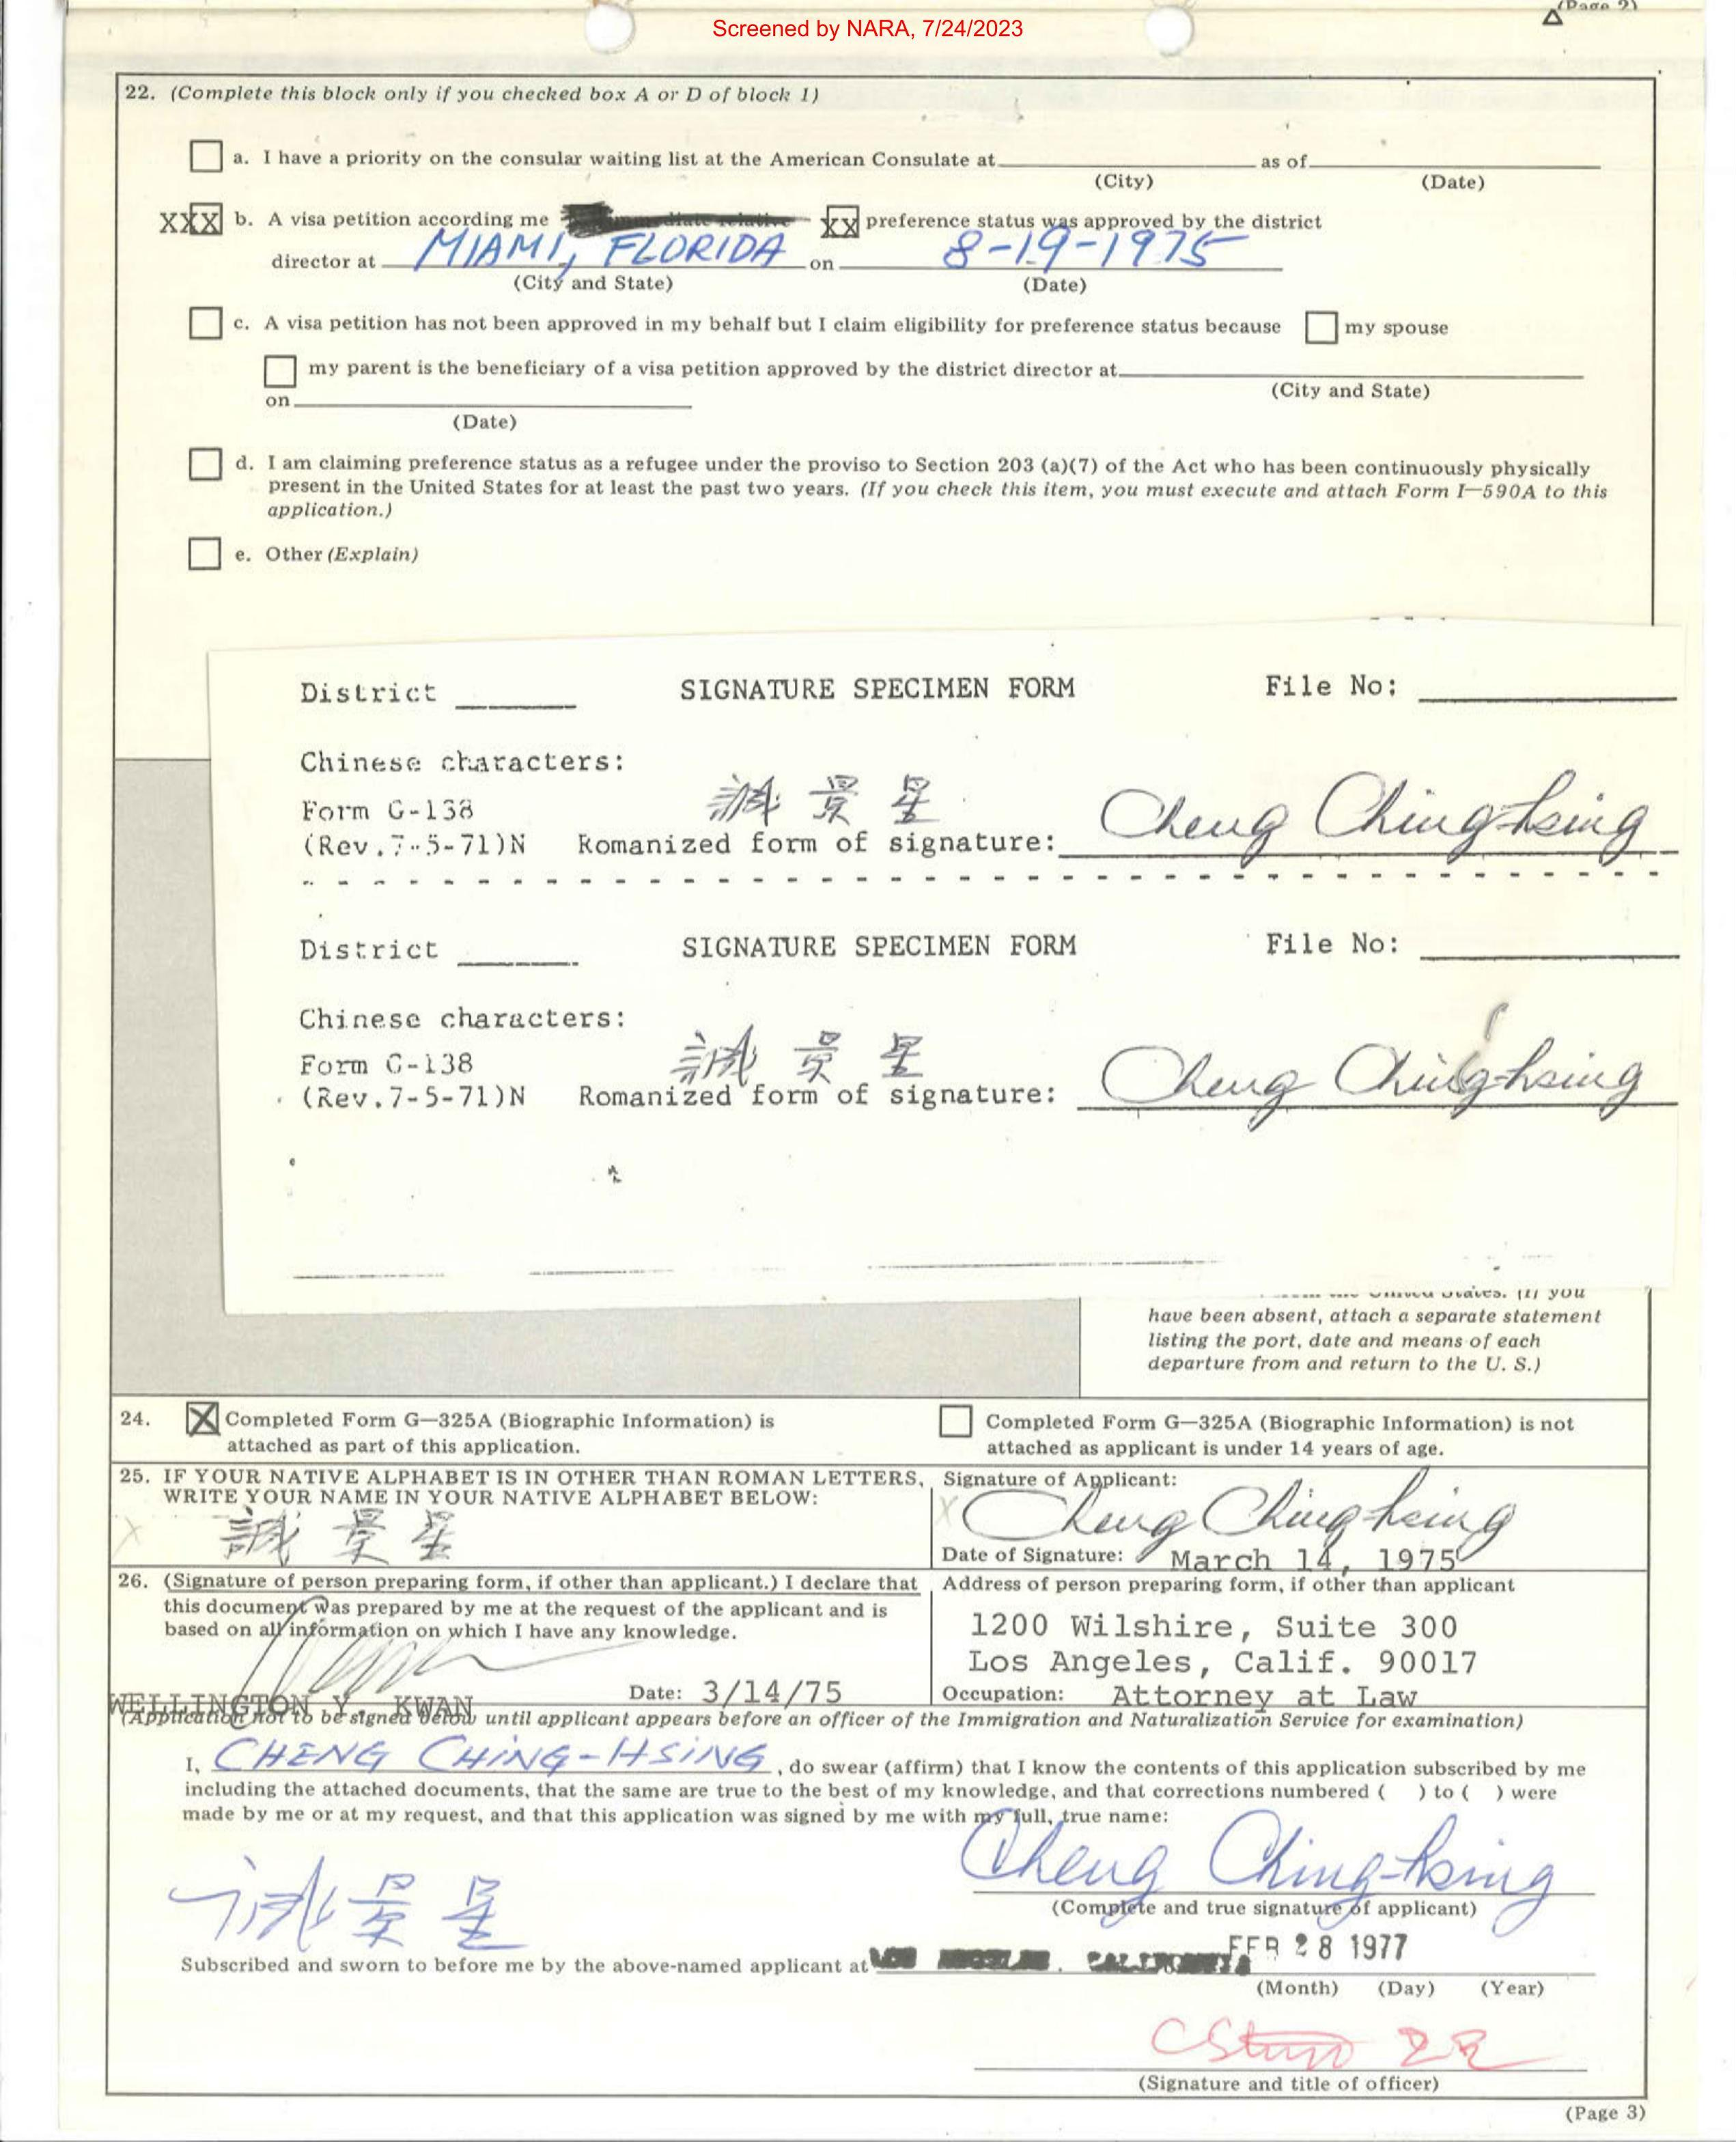 (Page 2)
Screened by NARA, 7/24/2023
22. (Complete this block only if you checked box A or D of block 1)
a. I have a priority on the consular waiting list at the American Consulate at as of
(City) (Date)
XXX b. A visa petition according me preference status was approved by the district
XX
director at MIAMI, FLORIDA on 8-19-1975
(City and State) (Date)
c. A visa petition has not been approved in my behalf but I claim eligibility for preference status because my spouse
my parent is the beneficiary of a visa petition approved by the district director at
on (City and State)
(Date)
d. I am claiming preference status as a refugee under the proviso to Section 203 (a)(7) of the Act who has been continuously physically
present in the United States for at least the past two years. (If you check this item, you must execute and attach Form I—590A to this
application.)
e. Other (Explain)
District SIGNATURE SPECIMEN FORM File No:
Chinese characters:
誠景星 Cheng Ching-hsing
Form G-138
(Rev.7-5-71)N Romanized form of signature:
District SIGNATURE SPECIMEN FORM File No:
Chinese characters:
誠景星 Cheng Ching-hsing
Form G-138
(Rev.7-5-71)N Romanized form of signature:
United States. (If you
have been absent, attach a separate statement
listing the port, date and means of each
departure from and return to the U. S.)
24. X Completed Form G—325A (Biographic Information) is
attached as part of this application.
Completed Form G—325A (Biographic Information) is not
attached as applicant is under 14 years of age.
25. IF YOUR NATIVE ALPHABET IS IN OTHER THAN ROMAN LETTERS,
WRITE YOUR NAME IN YOUR NATIVE ALPHABET BELOW:
X 誠景星
Signature of Applicant:
X Cheng Ching-hsing
Date of Signature: March 14, 1975
26. (Signature of person preparing form, if other than applicant.) I declare that
this document was prepared by me at the request of the applicant and is
based on all information on which I have any knowledge.
WELLINGTON Y. KWAN Date: 3/14/75
Address of person preparing form, if other than applicant
1200 Wilshire, Suite 300
Los Angeles, Calif. 90017
Occupation: Attorney at Law
(Application not to be signed below until applicant appears before an officer of the Immigration and Naturalization Service for examination)
I, CHENG CHING-HSING, do swear (affirm) that I know the contents of this application subscribed by me
including the attached documents, that the same are true to the best of my knowledge, and that corrections numbered ( ) to ( ) were
made by me or at my request, and that this application was signed by me with my full, true name:
誠景星 Cheng Ching-hsing
(Complete and true signature of applicant)
Subscribed and sworn to before me by the above-named applicant at LOS ANGELES, CALIFORNIA FEB 28 1977
(Month) (Day) (Year)
(Signature and title of officer)
(Page 3)